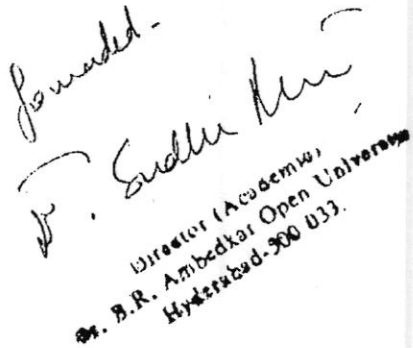 forwarded.
Director (Academic)
Dr. B.R. Ambedkar Open University
Hyderabad-500 033.